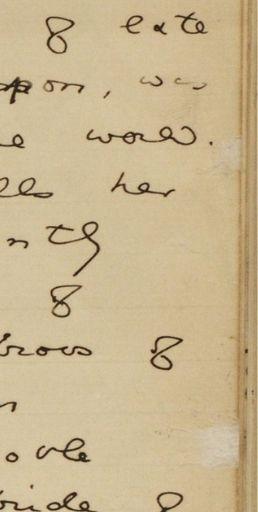 & late
pon, was
e world.
lls her
ntly
&
brows &
n
ovle
bride &